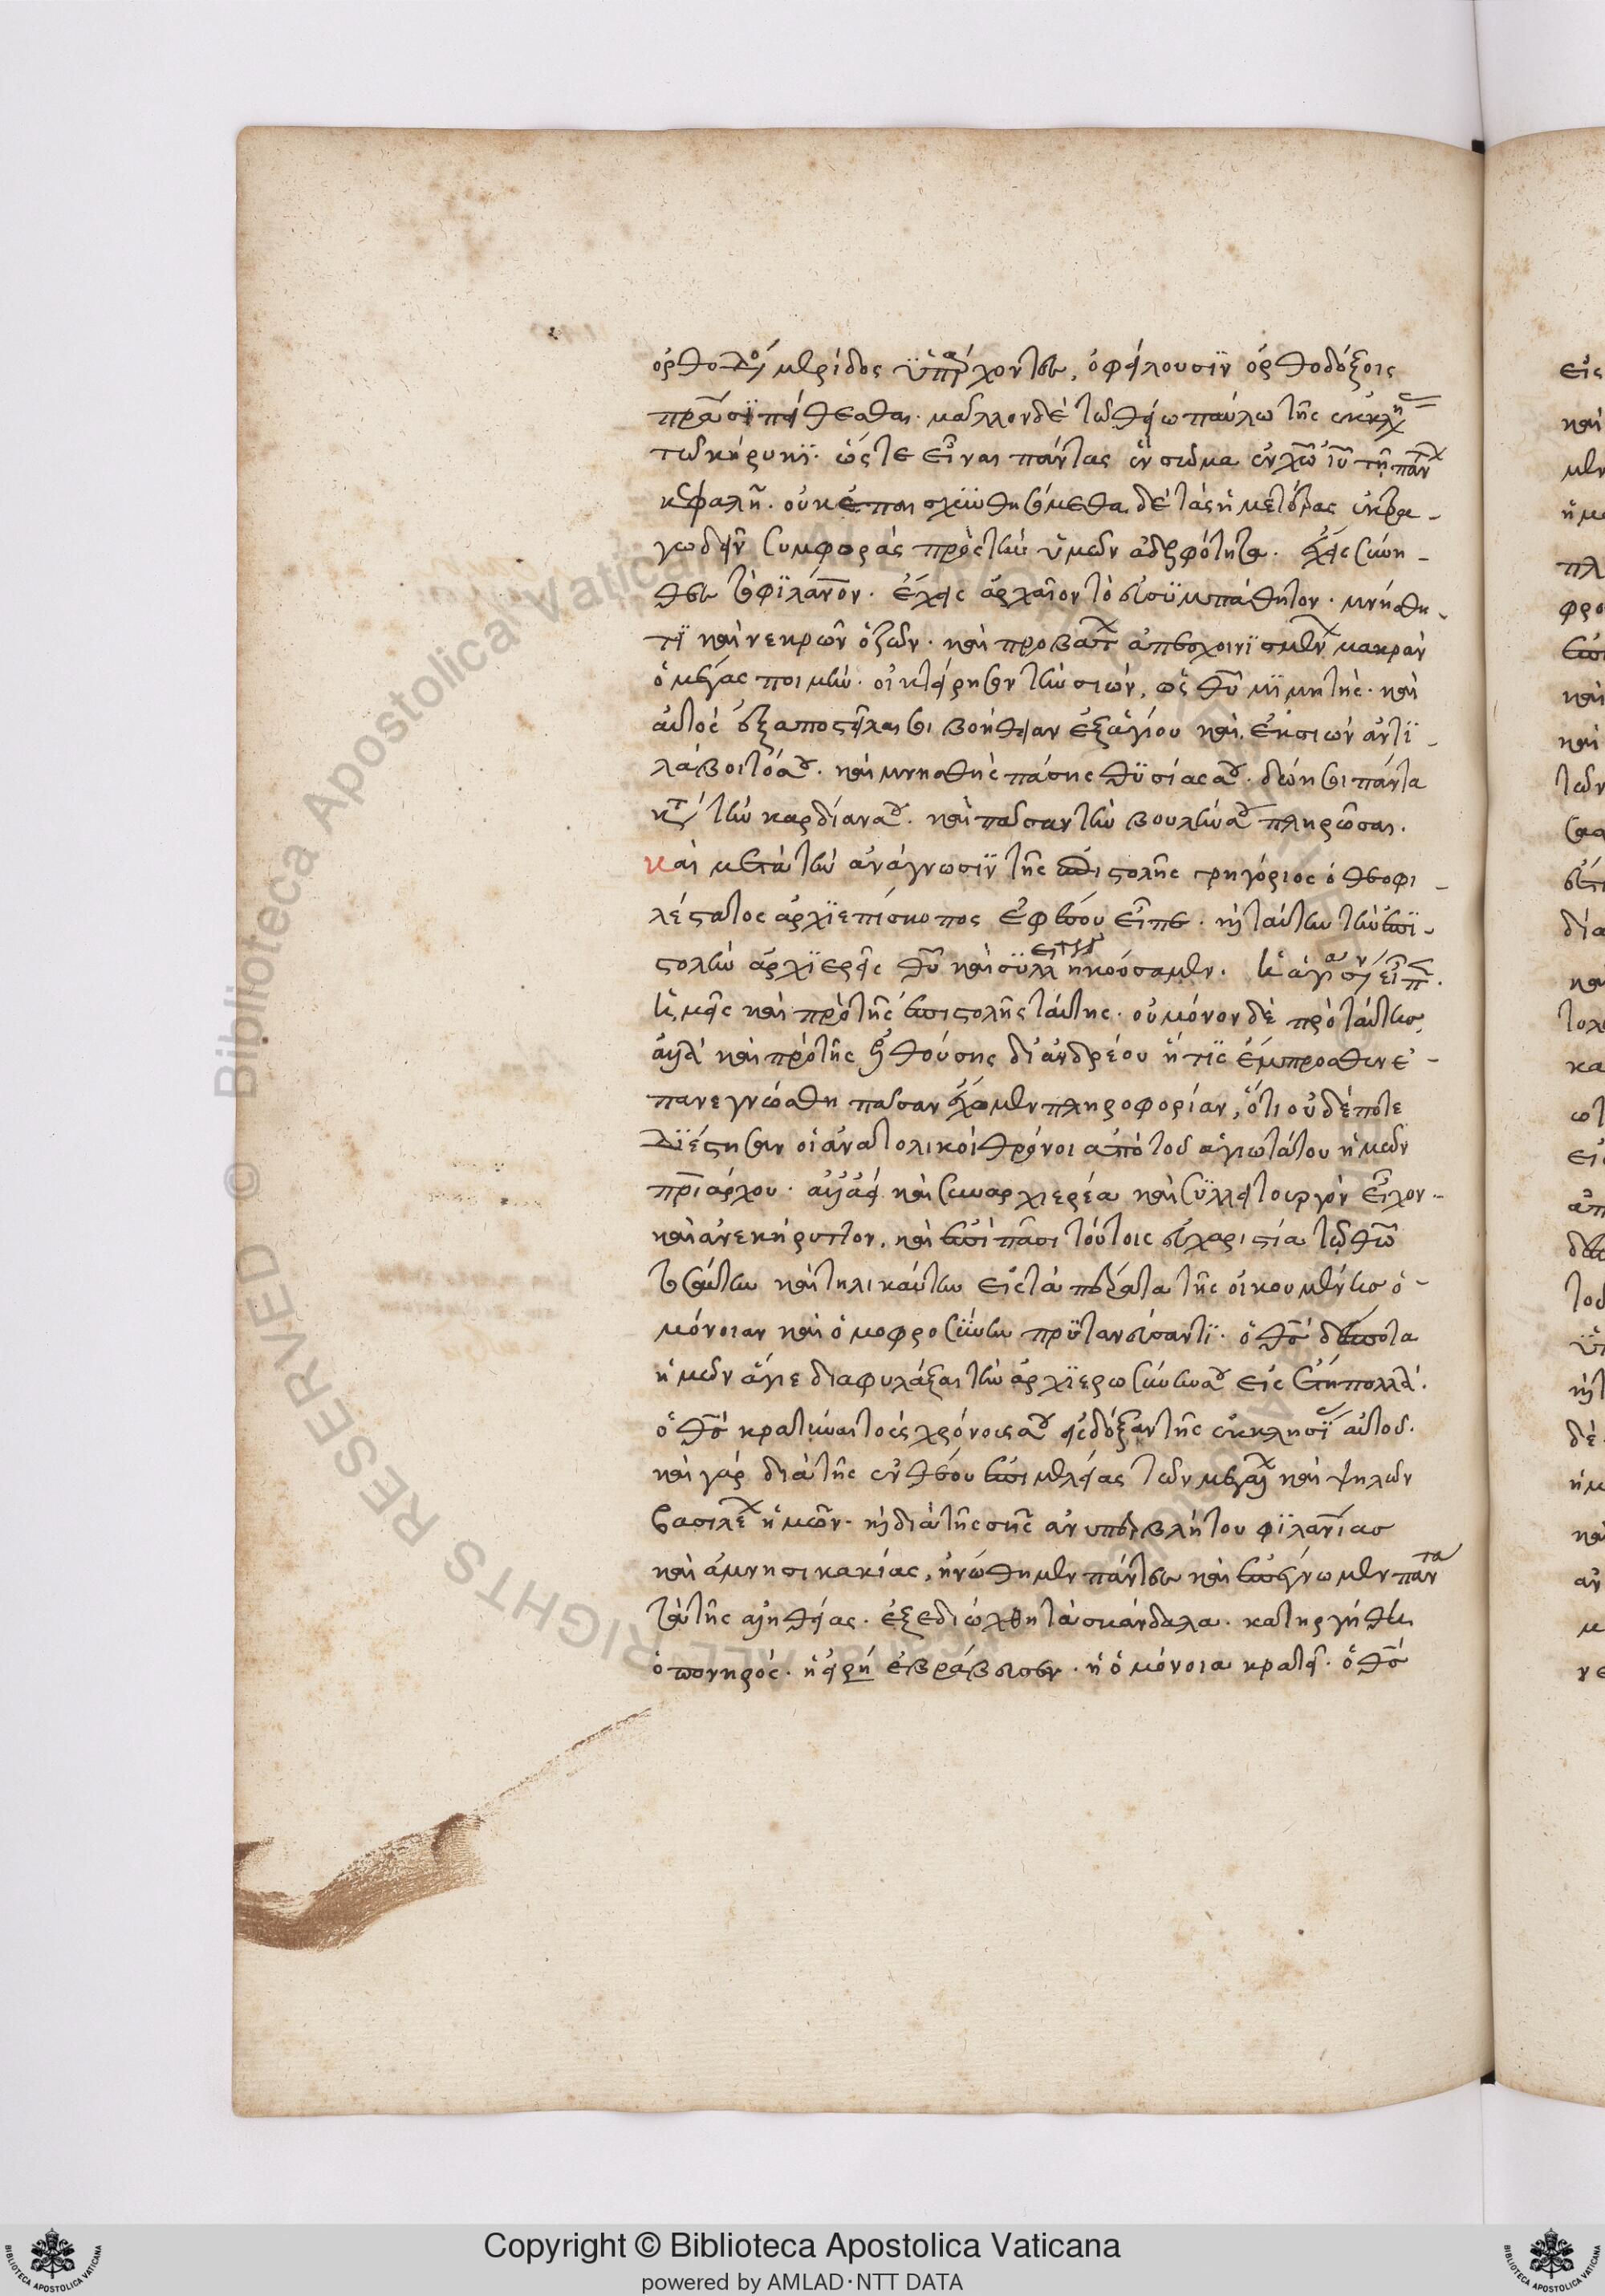 ὀρθοδό μερίδος ὑπάρχοντες, ὀφείλουσϊν ὀρθοδόξοις
πρᾶσϊ πείθεσθαι· μᾶλλον δὲ τῶ θείω παύλω τῆς ἐκκλη
τῶ κήρυκϊ· ὥστε εἶναι πάντας ἓν σῶμα ἐν χῶ ἰῦ τῆ πάντ
κεφαλῆ. οὐκ ἐπαισχυνθησόμεθα δὲ τὰς ἡμετέρας ἐκτρα-
γωδεῖν συμφορὰς πρὸς τὴν ὑμῶν ἀδελφότητα. ἔχεις σύνη-
θες τὸ φϊλάνον· ἔχεις ἀρχαῖον τὸ εὐσϋμπάθητον· μνήσθη-
τϊ καὶ νεκρῶν ὄζων· καὶ προβάτ ἀπεσχοινϊσμέν μακρὰν
ὁ μέγας ποιμήν· οἰκτείρησον τὴν σιών, ὡς θῦ μϊμητής· καὶ
αὐτὸς ἐξαποστεῖλαι σοι βοήθειαν ἐξ ἁγίου καὶ ἐκ σιὼν ἀντϊ-
λάβοιτό σου. καὶ μνησθῆς πάσης θϋσίας σου. δώη σοι πάντα
κτ τὴν καρδίαν σου. καὶ πᾶσαν τὴν βουλήν σου πληρῶσαι.
καὶ μετὰ τὴν ἀνάγνωσϊν τῆς ἐπιστολῆς γρηγόριος ὁ θεοφι-
λέστατος ἀρχϊεπίσκοπος ἐφέσου εἶπε· κỳ ταύτην τὴν ἐπϊ-
στολὴν ἀρχϊερεῖς θῦ καὶ σϋλλ ἠκούσαμεν. ἡ ἁγία σύν εἶπ.
ἡμεῖς καὶ πρὸ τῆς ἐπιστολῆς ταύτης· οὐ μόνον δὲ πρὸ ταύτης
ἀλλὰ καὶ πρὸ τῆς ἐλθούσης δι' ἀνδρέου ἥτϊς ἔμπροσθεν ἐ-
πανεγνώσθη πᾶσαν ἔχομεν πληροφορίαν, ὅτι οὐδέποτε
δϊέστησαν οἱ ἀνατολικοὶ θρόνοι ἀπὸ τοῦ ἁγιωτάτου ἡμῶν
πριάρχου· ἀλλ' ἀεὶ καὶ συναρχιερέα καὶ σϋλλειτουργὸν εἶχον
καὶ ἀνεκήρυττον. καὶ ἐπὶ πᾶσι τούτοις εὐχαριστία τῶ θῶ
τοσαύτην καὶ τηλικαύτην εἰς τὰ πέρατα τῆς οἰκουμένης ὁ-
μόνοιαν καὶ ὁμοφροσϋνην πρϋτανεύσαντϊ. ὁ θσ δέσποτα
ἡμῶν ἅγιε διαφυλάξαι τὴν ἀρχϊερωσύνην σου εἰς ἔτη πολλά.
ὁ θσ κρατύναι τοὺς χρόνους σου εἰς δόξαν τῆς ἐκκλησΐ αὐτοῦ.
καὶ γὰρ διὰ τῆς ἐνθέου ἐπιμελείας τῶν μεγάλ καὶ ὑψηλῶν
βασιλέ ἡμῶν· κỳ διὰ τῆς σῆς ἀνυπερβλήτου φϊλανίας
καὶ ἀμνησικακίας, ἡνώθημεν πάντες καὶ ἐπέγνωμεν πάντα
τὰ τῆς ἀληθείας. ἐξεδιώχθη τὰ σκάνδαλα. κατηργήθη
ὁ πονηρός. ἡ εἰρή ἐβράβευσεν. ἡ ὁμόνοια κρατεῖ. ὁ θσ
Copyright © Biblioteca Apostolica Vaticana
powered by AMLAD·NTT DATA